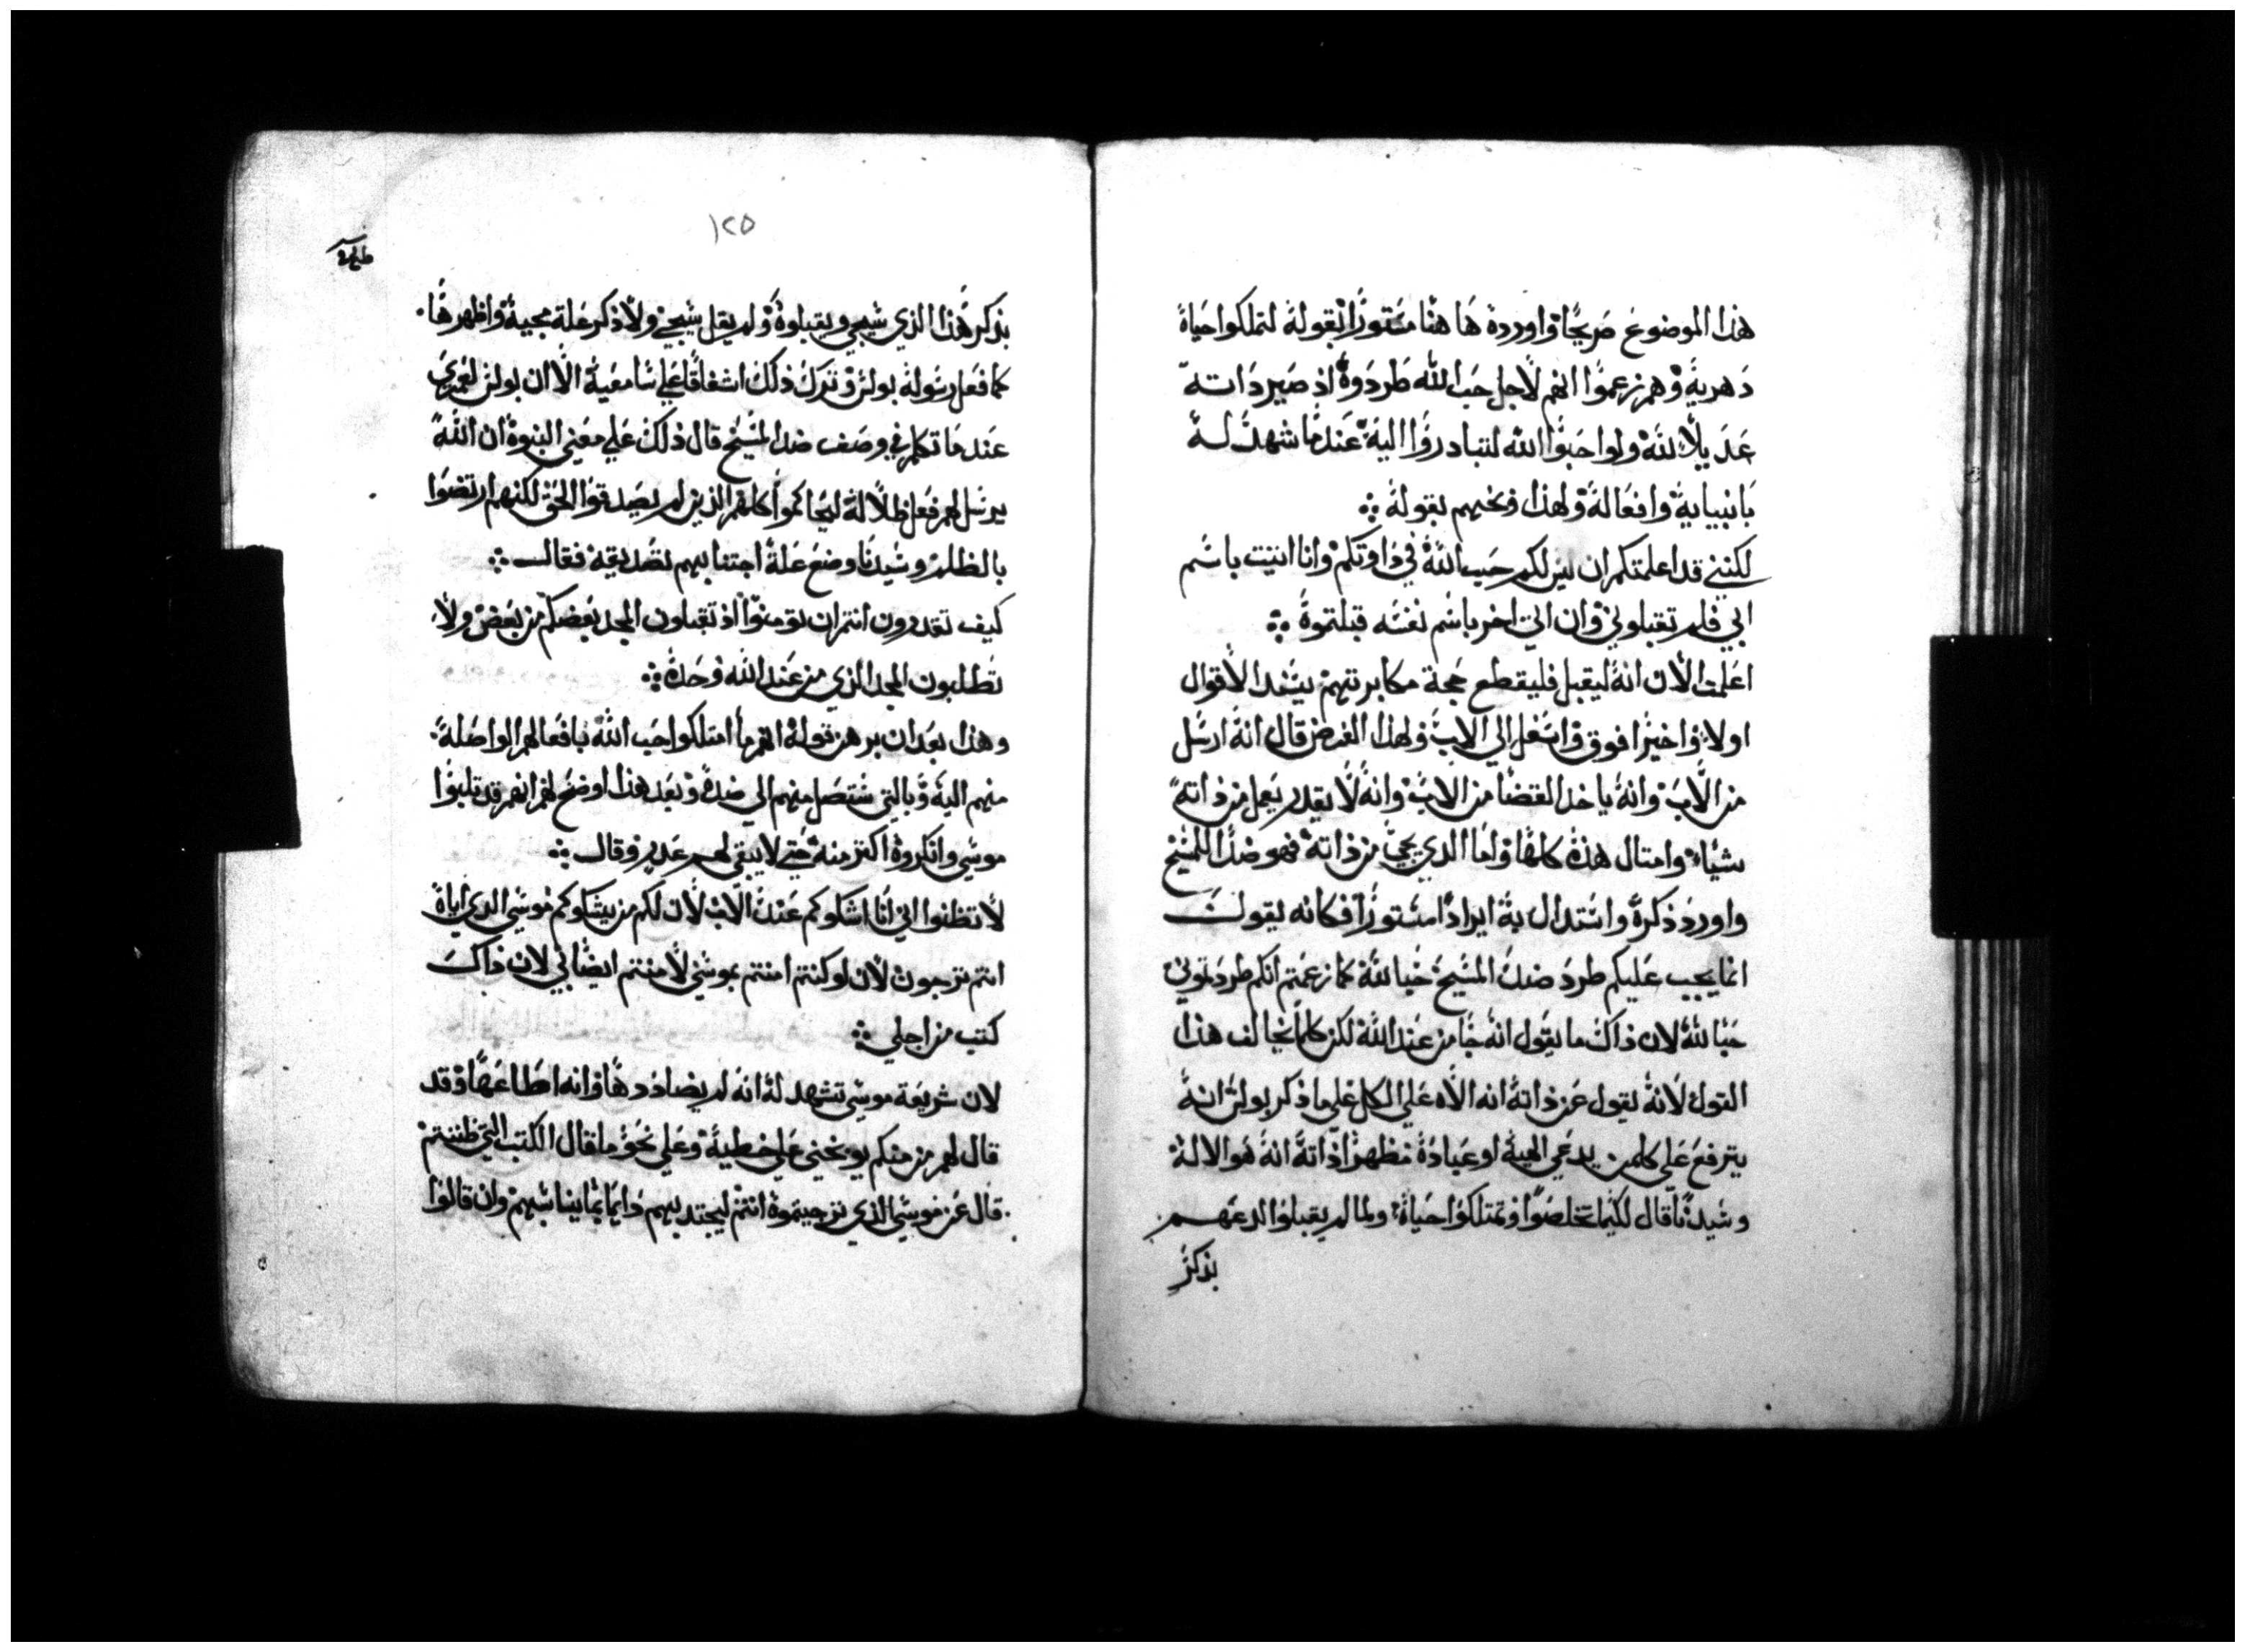 هذا الموضوع صريحًا واورده ها هنا مستورًا بقوله لتملكوا حياة
دهرية وهم زعموا انهم لاجل حب الله طردوه اذ صير داته
عديلًا لله ولو احبوا الله لتبادروا اليه عندما شهد له
بانبيايه وافعاله ولهذا وبخهم بقوله
لكنني قد اعلمتكم ان ليس لكم حب الله في داوتكم وانا اتيت باسم
ابي فلم تقبلوني وان اتي اخر باسم نفسه قبلتموه
اعلمت الان انه ليقبل فليقطع حجة مكابرتهم يشد الاقوال
اولا واخيرا فوق واسفل الي الاب ولهذا الغرض قال انه ارسل
من الاب وانه ياخد القضا من الاب وانه لا يقدر يعمل من ذاته
شياء وامتال هذه كلها واما الدي يجي من ذاته فهو ضد المسيح
واورد ذكره واستدل به ايرادا مستورا فكانه يقول
انما يجب عليكم طرد ضد المسيح حبا لله كما زعمتم انكم طردتموني
حبا لله لان ذاك ما يقول انه جا من عند الله لكن كلما يخالف هذا
القول لانه يقول عن ذاته انه الاه علي الكل علي ما ذكر بولس انه
يترفع علي كلمن يدعي الهية او عبادة مظهرا ذاته انه هو الاله
وسيدنا قال لكيما تخلصوا وتمتلكوا حياة ولما لم يقبلوا لدعهم
بذكر
١٢٥
بذكر هذا الذي سيجي ويقبلوه ولم يقل سيجي ولا ذكر علة مجيه واظهرها
كما فعل رسوله بولس وترك ذلك اشفاقا علي سامعيه الا ان بولس لعمري
عندما تكلم في وصف ضد المسيح قال ذلك علي معني النبوة ان الله
يرسل لهم فعل ظلالة ليحاكموا كلهم الذين لم يصدقوا الحق لكنهم ارتضوا
بالظلم وسيدنا وضع علة اجتنابهم تصديقه فقال
كيف تقدرون انتم ان تومنوا اذ تقبلون المجد بعضكم من بعض ولا
تطلبون المجد الذي من عند الله وحده
وهذا بعد ان برهن قوله انهم ما امتلكوا حب الله بافعالهم الواصلة
منهم اليه وبالتي ستصل منهم الي ضده وبعد هذا اوضح لهم انهم قد تلبوا
موسي وانكروه اكتر منه حتي لا يبقي لهم عدر وقال
لا تظنوا اني انا اشكوكم عند الاب لان لكم من يشكوكم موسي الدي اياه
انتم ترجون لان لو كنتم امنتم بموسي لامنتم ايضا بي لان ذاك
كتب من اجلي
لان شريعة موسي تشهد له انه لم يضاددها وانه اطاعها وقد
قال لهم من منكم يوبخني علي خطية وعلي نحو ما قال الكتب التي ظننتم
قال عن موسي الذي ترجيتموه انتم ليجتدبهم دايما بما يناسبهم وان قالوا